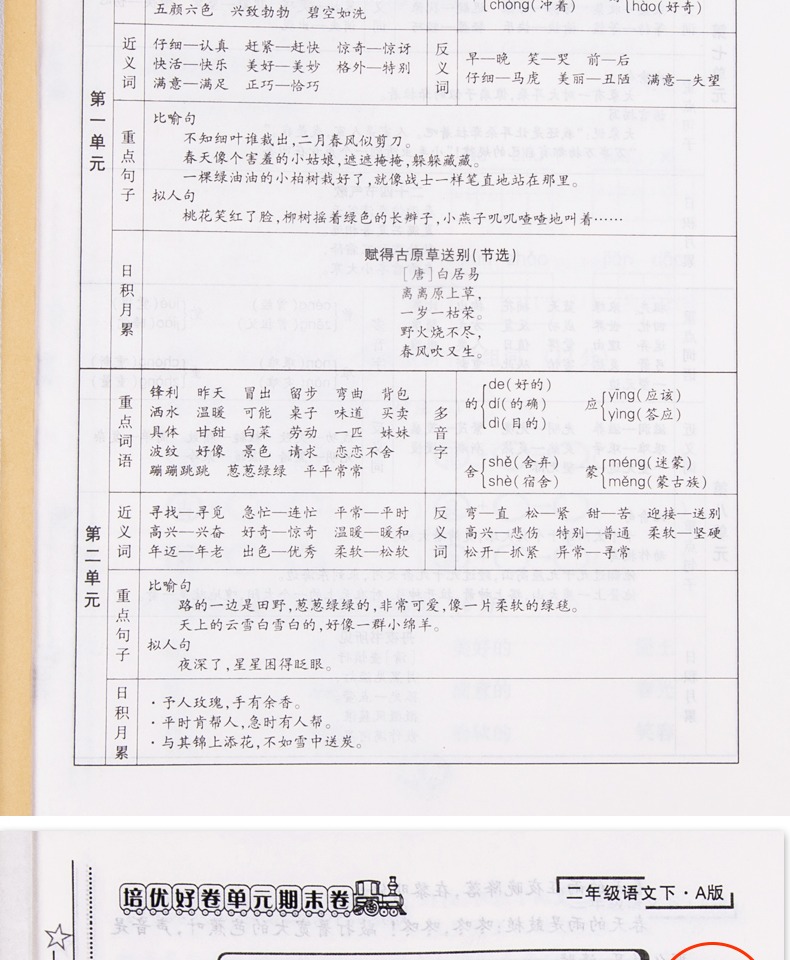 五颜六色 兴致勃勃 碧空如洗
chòng(冲着) hào(好奇)
第一单元
近义词
仔细—认真 赶紧—赶快 惊奇—惊讶
快活—快乐 美好—美妙 格外—特别
满意—满足 正巧—恰巧
反义词
早—晚 笑—哭 前—后
仔细—马虎 美丽—丑陋 满意—失望
重点句子
比喻句
不知细叶谁裁出,二月春风似剪刀。
春天像个害羞的小姑娘,遮遮掩掩,躲躲藏藏。
一棵绿油油的小柏树栽好了,就像战士一样笔直地站在那里。
拟人句
桃花笑红了脸,柳树摇着绿色的长辫子,小燕子叽叽喳喳地叫着……
日积月累
赋得古原草送别(节选)
[唐]白居易
离离原上草,
一岁一枯荣。
野火烧不尽,
春风吹又生。
第二单元
重点词语
锋利 昨天 冒出 留步 弯曲 背包
洒水 温暖 可能 桌子 味道 买卖
具体 甘甜 白菜 劳动 一匹 妹妹
波纹 好像 景色 请求 恋恋不舍
蹦蹦跳跳 葱葱绿绿 平平常常
多音字
的 de(好的) dí(的确) dì(目的)
应 yīng(应该) yìng(答应)
舍 shě(舍弃) shè(宿舍)
蒙 méng(迷蒙) měng(蒙古族)
近义词
寻找—寻觅 急忙—连忙 平常—平时
高兴—兴奋 好奇—惊奇 温暖—暖和
年迈—年老 出色—优秀 柔软—松软
反义词
弯—直 松—紧 甜—苦 迎接—送别
高兴—悲伤 特别—普通 柔软—坚硬
松开—抓紧 异常—寻常
重点句子
比喻句
路的一边是田野,葱葱绿绿的,非常可爱,像一片柔软的绿毯。
天上的云雪白雪白的,好像一群小绵羊。
拟人句
夜深了,星星困得眨眼。
日积月累
·予人玫瑰,手有余香。
·平时肯帮人,急时有人帮。
·与其锦上添花,不如雪中送炭。
培优好卷单元期末卷
二年级语文下·A版